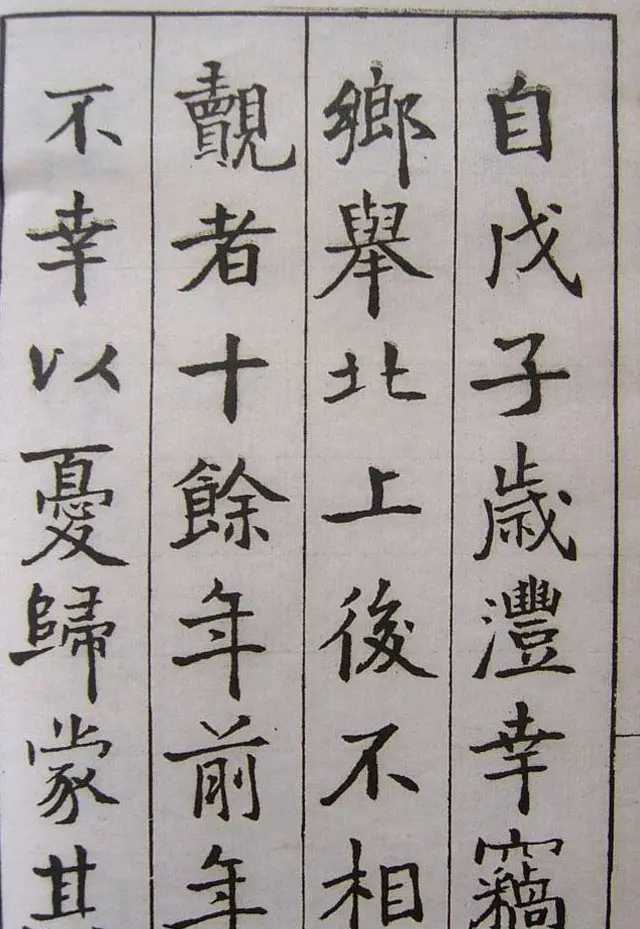 自戊子歲灃幸竊
鄉舉北上後不相
覿者十餘年前年
不幸以憂歸蒙其